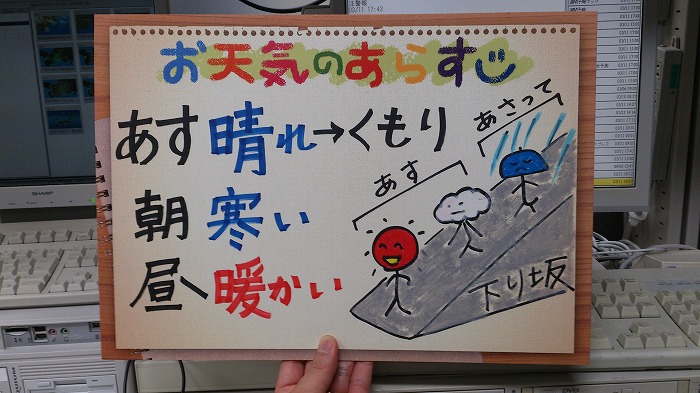 お天気のあらすじ
あす 晴れ→くもり
朝 寒い
昼へ 暖かい
あす
あさって
下り坂
SHARP
注警報
03/11 17:43